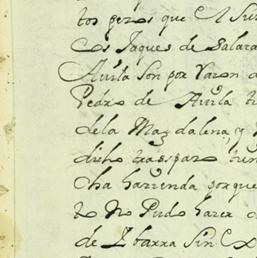 tos pesos que
Jaques de Salaza
Auila son por Razon d
Pedro de Auila
dela Magdalena, y
dicho traspaso
cha hazienda porque
to No Pudo hazer
de Ybarra Sin